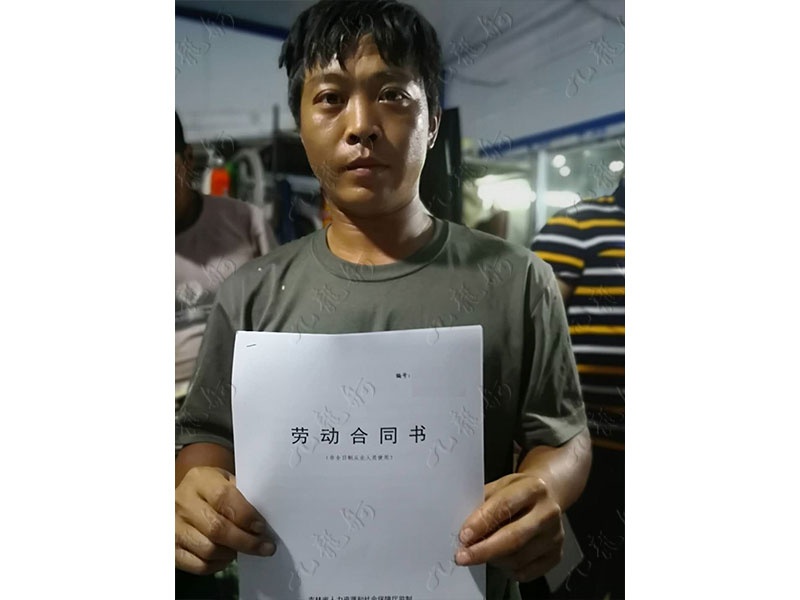 编号：
劳动合同书
（非全日制从业人员使用）
吉林省人力资源和社会保障厅监制